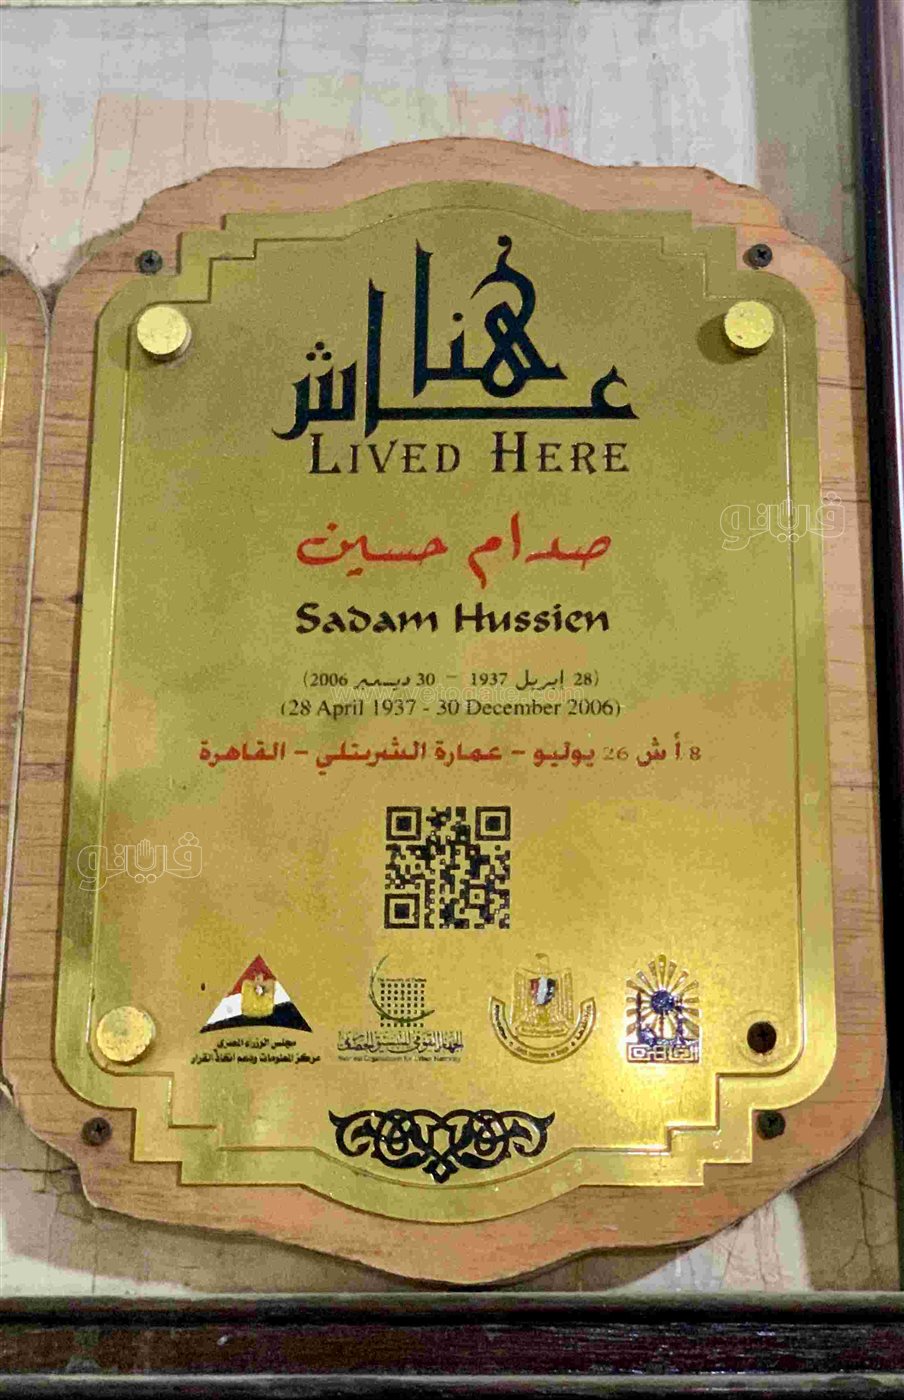 هنا
عاش
LIVED HERE
صدام حسين
Sadam Hussien
(28 ابريل 1937 - 30 ديسمبر 2006)
(28 April 1937 - 30 December 2006)
8 أ ش 26 يوليو - عمارة الشربتلي - القاهرة
مجلس الوزراء المصرى
مركز المعلومات ودعم اتخاذ القرار
الجهاز القومي للتنسيق الحضاري
National Organization for Urban Harmony
القاهرة
فيتو
فيتو
www.vetogate.com